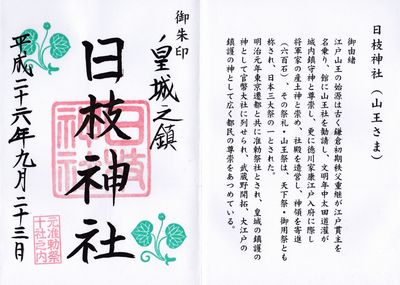 日枝神社(山王さま)
御由緒
江戸山王の始源は古く鎌倉初期秩父重継が江戸貫主を
名乗り、館に山王社を勧請し、文明年中太田道灌が
城内鎮守神と尊崇し、更に徳川家康江戸入府に際し
将軍家の産土神と崇め、社殿を造営し、神領を寄進
(六百石)、その祭礼・山王祭は、天下祭・御用祭とも
称され、日本三大祭の一とされた。
明治元年東京遷都と共に准勅祭社とされ、皇城の鎮護の
神として官幣大社に列せられ、武蔵野開拓、大江戸の
鎮護の神として広く都民の尊崇をあつめている。
御朱印
皇城之鎮
日枝神社
日枝
神社
平成二十六年九月二十三日
元准勅祭
十社之内